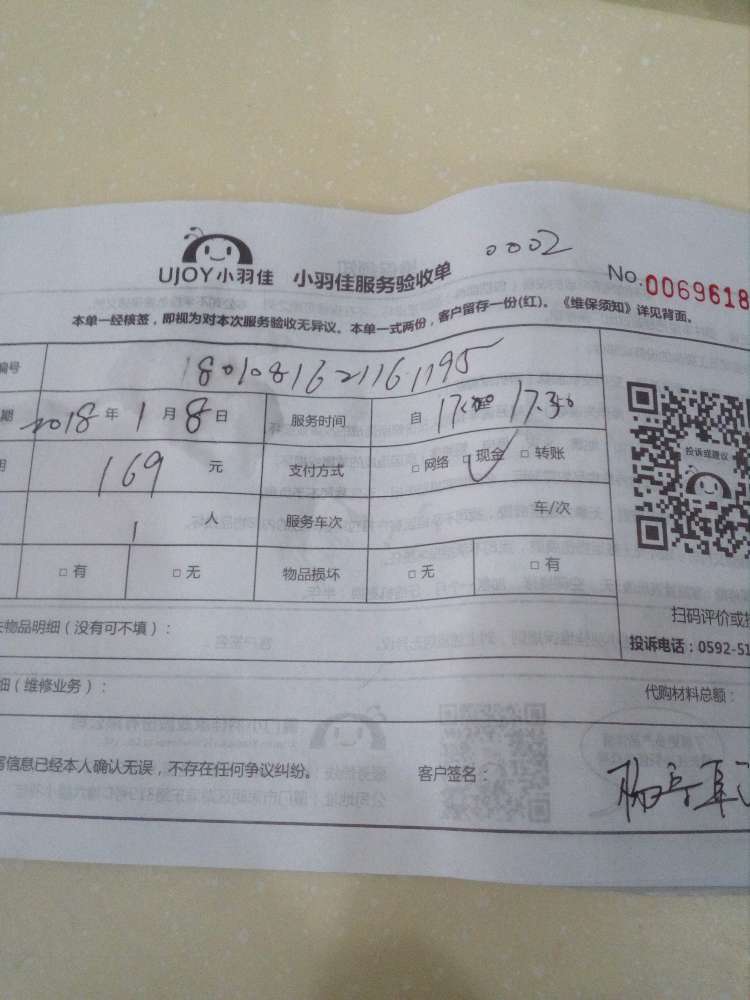 UJOY小羽佳 小羽佳服务验收单 0002
No.0069618
本单一经核签，即视为对本次服务验收无异议。本单一式两份，客户留存一份(红)。《维保须知》详见背面。
编号 1801081621161195
期 2018年1月8日 服务时间 自
169元 支付方式 □网络 □现金 □转账
1人 服务车次 车/次
□有 □无 物品损坏 □无 □有
投诉或建议
扫码评价或
物品明细（没有可不填）：
投诉电话：0592-51
细（维修业务）： 代购材料总额：
信息已经本人确认无误，不存在任何争议纠纷。 客户签名：